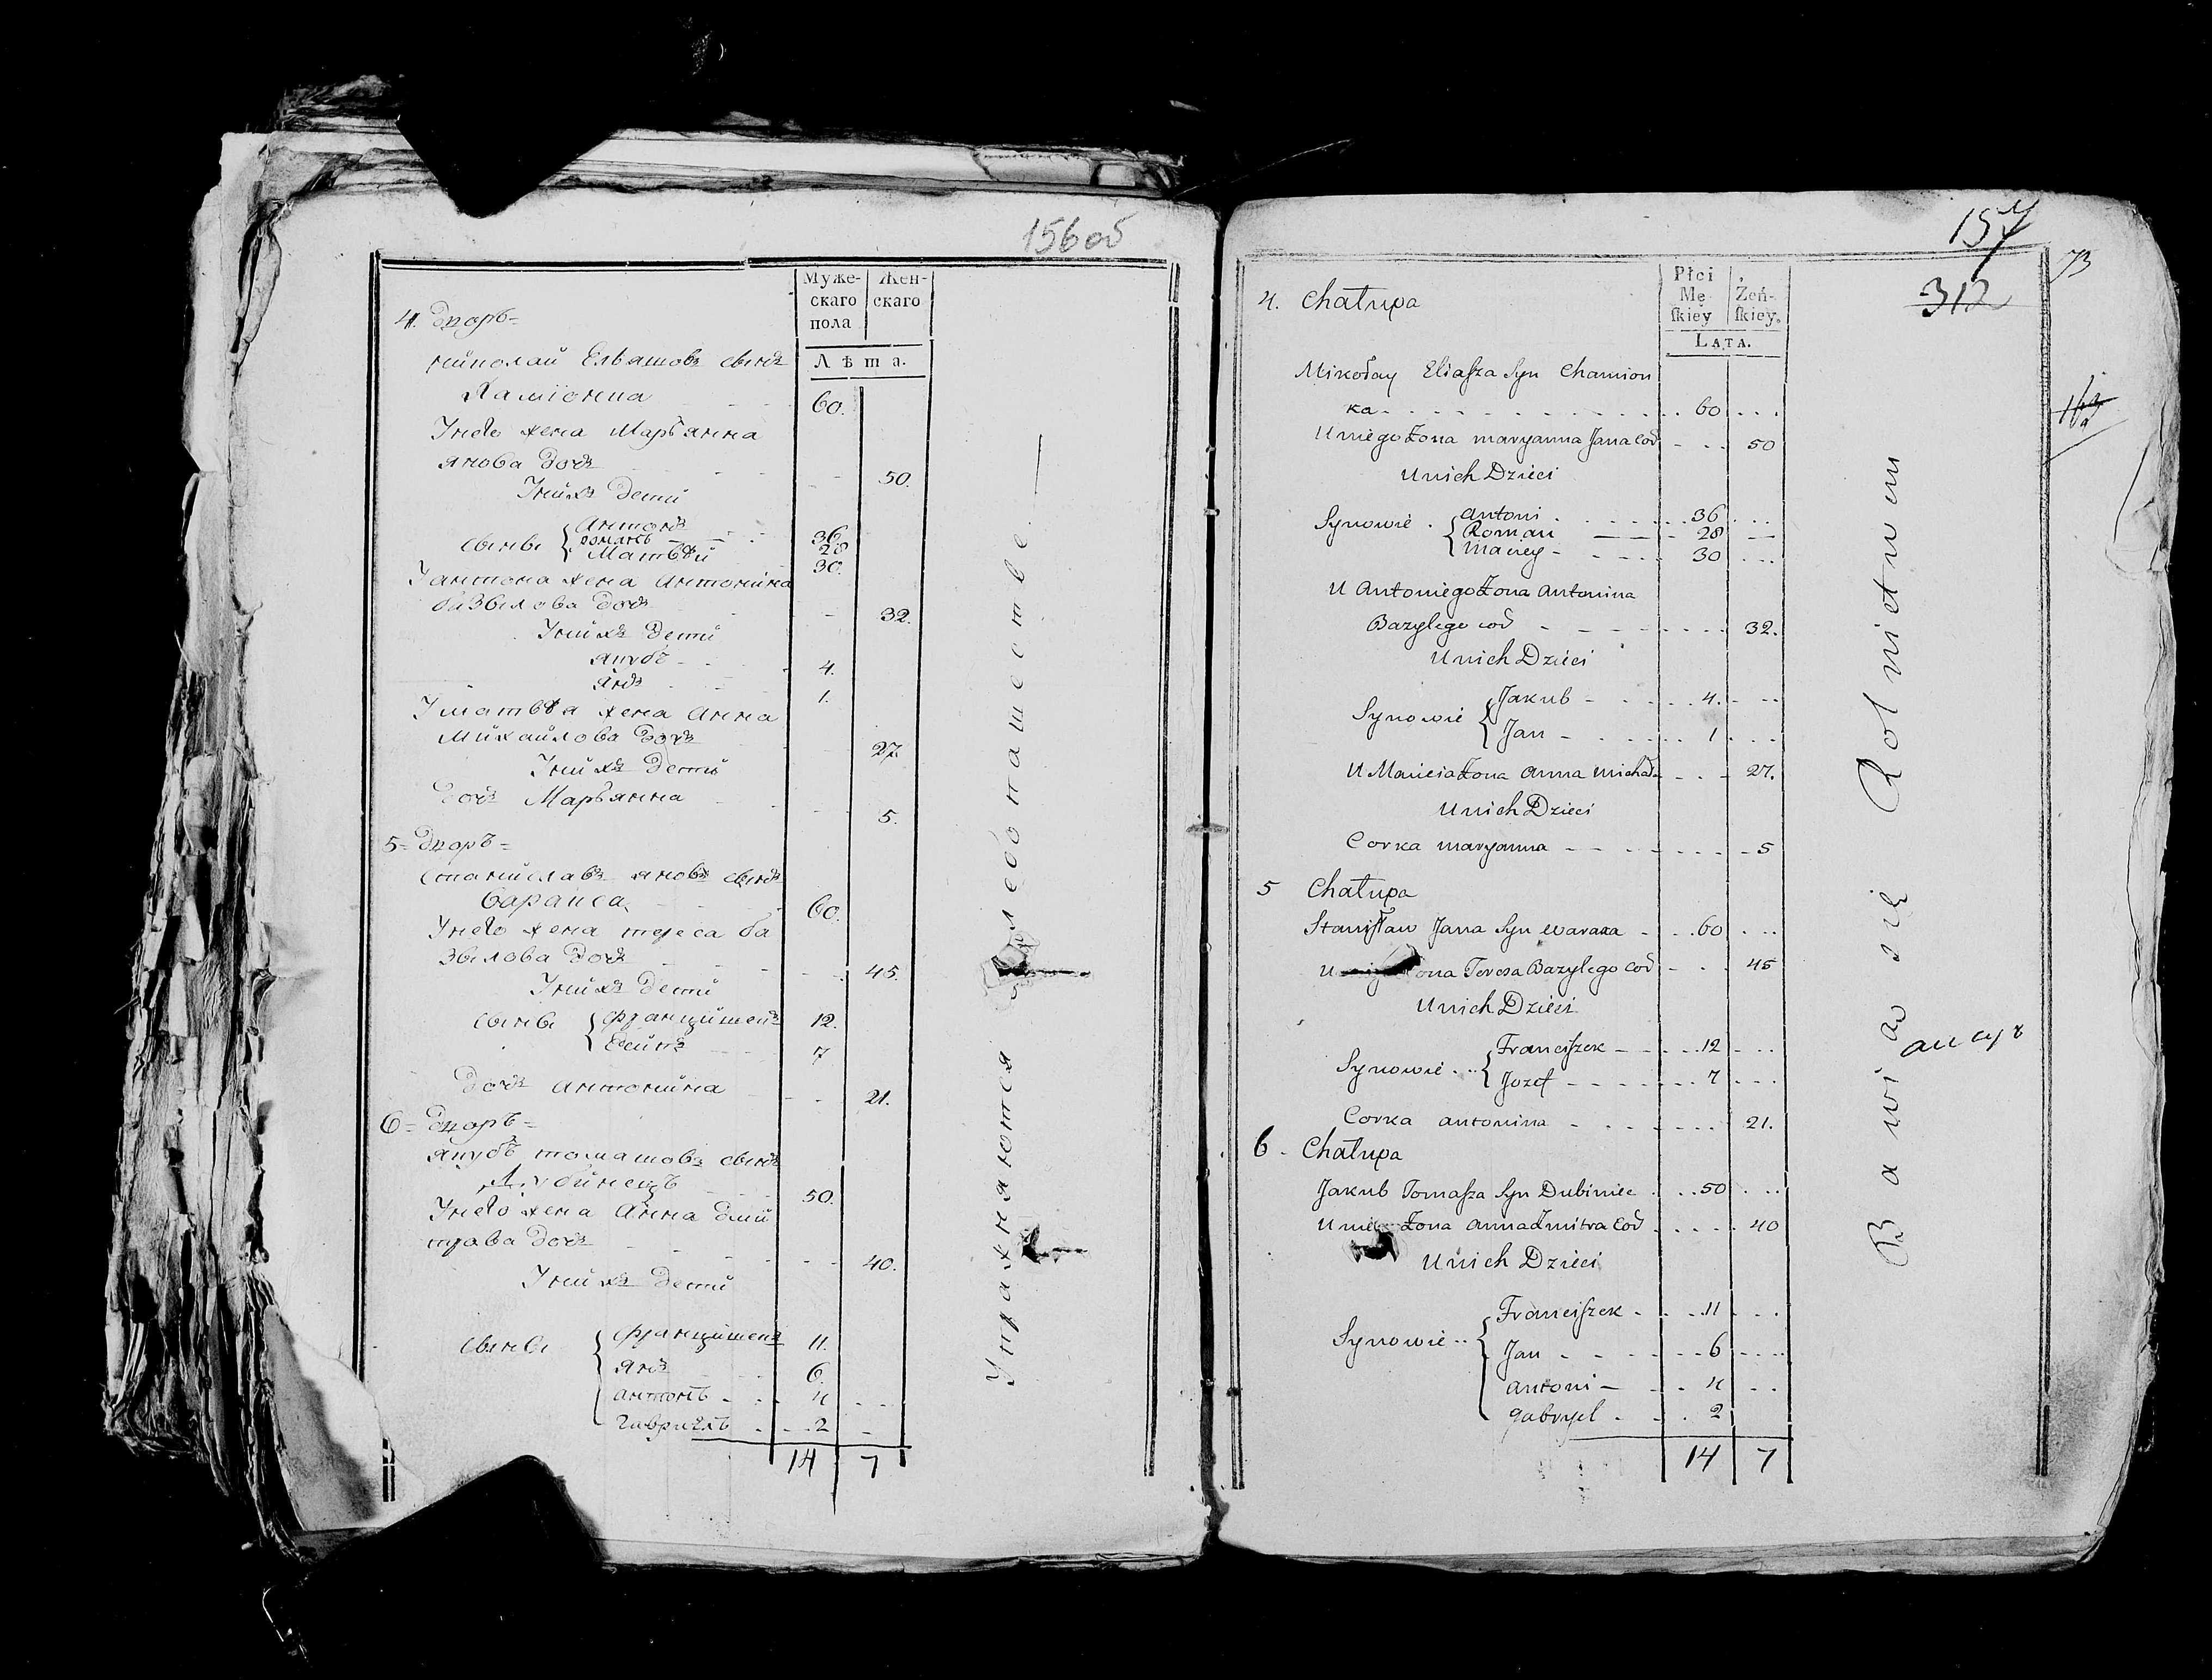 156 об
Муже-
скаго
пола
Жен-
скаго
Лѣта.
4. Дворъ
Николай Ельяшовъ сынъ
Хаміонка 60.
У него жена Марьянна
Янова дочь 50.
У нихъ дети
сыны { Антонъ 36
Романъ 28
Матвѣй 30.
У антона жена Антонина
базылова дочь 32.
У нихъ дети
якубъ 4.
янъ 1.
У матвѣя жена Анна
Михайлова дочь 27
У нихъ дети
дочь Марьянна 5.
5 Дворъ
Станиславъ яновъ сынъ
Варакса 60.
У него жена тереса ба
зылова дочь 45.
У нихъ дети
сыны { францишекъ 12.
7
дочь антонина 21.
6 Дворъ
якубъ томашовъ сынъ
50.
У него жена Анна дми
трова дочь 40.
У нихъ дети
сыны { францишекъ 11.
янъ 6.
антонъ 4
гавриелъ 2
14 7
Упражняются хлебопашествомъ
157
73
312
Płci
Mę-
ſkiey
Żeń-
ſkiey.
LATA.
4. Chałupa
Mikołay Eliaſza Syn Chamion
ka 60
U niego Żona maryanna Jana Cor 50
U nich Dzieci
Synowie { Antoni 36
Roman 28
Maciey 30
U Antoniego Żona Antonina
Bazylego cor 32.
U nich Dzieci
Synowie { Jakub 4.
Jan 1
U Macieia Żona Anna Michał 27.
U nich Dzieci
Corka maryanna 5
5 Chałupa
Staniſław Jana Syn Waraxa 60
U ona Teresa Bazylego Cor 45
U nich Dzieci
Synowie { Franciſzek 12
Jozef 7
Corka antonina 21.
6 Chałupa
Jakub Tomaſza Syn Dubiniec 50
U nie Żona anna Dmitra Cor 40
U nich Dzieci
Synowie { Franciſzek 11
Jan 6
antoni 4
gabryel 2
14 7
Bawią się Rolnictwem